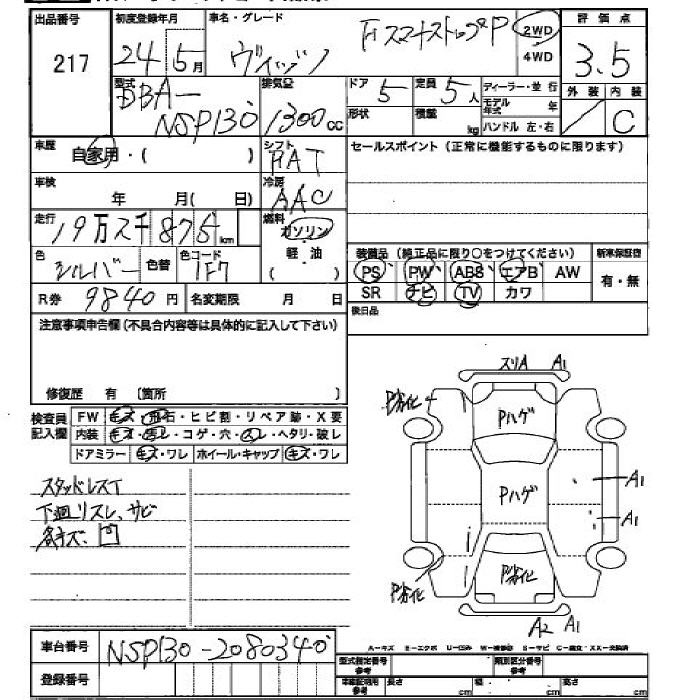 出品番号 初度登録年月 車名・グレード 評価点
217 24年5月 ヴィッツ F スマートストップP 2WD 4WD 3.5
型式 DBA-NSP130 排気量 1300cc ドア 5 定員 5人 ディーラー・並行 外装 内装
形状 積載 kg モデル年式 年 ハンドル 左・右 C
車歴 自家用・( ) シフト FAT セールスポイント(正常に機能するものに限ります)
車検 年 月( 日) 冷房 AAC
走行 19万 875km 燃料 ガソリン・軽油 ( )
色 シルバー 色替 色コード 1F7
装備品(純正品に限り○をつけてください) 新車保証書
PS PW ABS エアB AW 有・無
SR ナビ TV カワ
R券 9840円 名変期限 月 日
後日品
注意事項申告欄(不具合内容等は具体的に記入して下さい)
修復歴 有 〔箇所 〕
検査員記入欄 FW キズ・飛石・ヒビ割・リペア跡・X要
内装 キズ・汚レ・コゲ・穴・スレ・ヘタリ・破レ
ドアミラー キズ・ワレ ホイール・キャップ キズ・ワレ
スタッドレスT
下廻リスレ、サビ
各キズ、凹
スリA A1
P劣化 4
Pハゲ
Pハゲ
A1
A1
P劣化
P劣化
A2 A1
車台番号 NSP130-2080340
登録番号
A-キズ E-エクボ U-凹み W-補修跡 S-サビ C-腐食
型式指定番号 参考 類別区分番号 参考
長さ cm 幅 cm 高さ cm